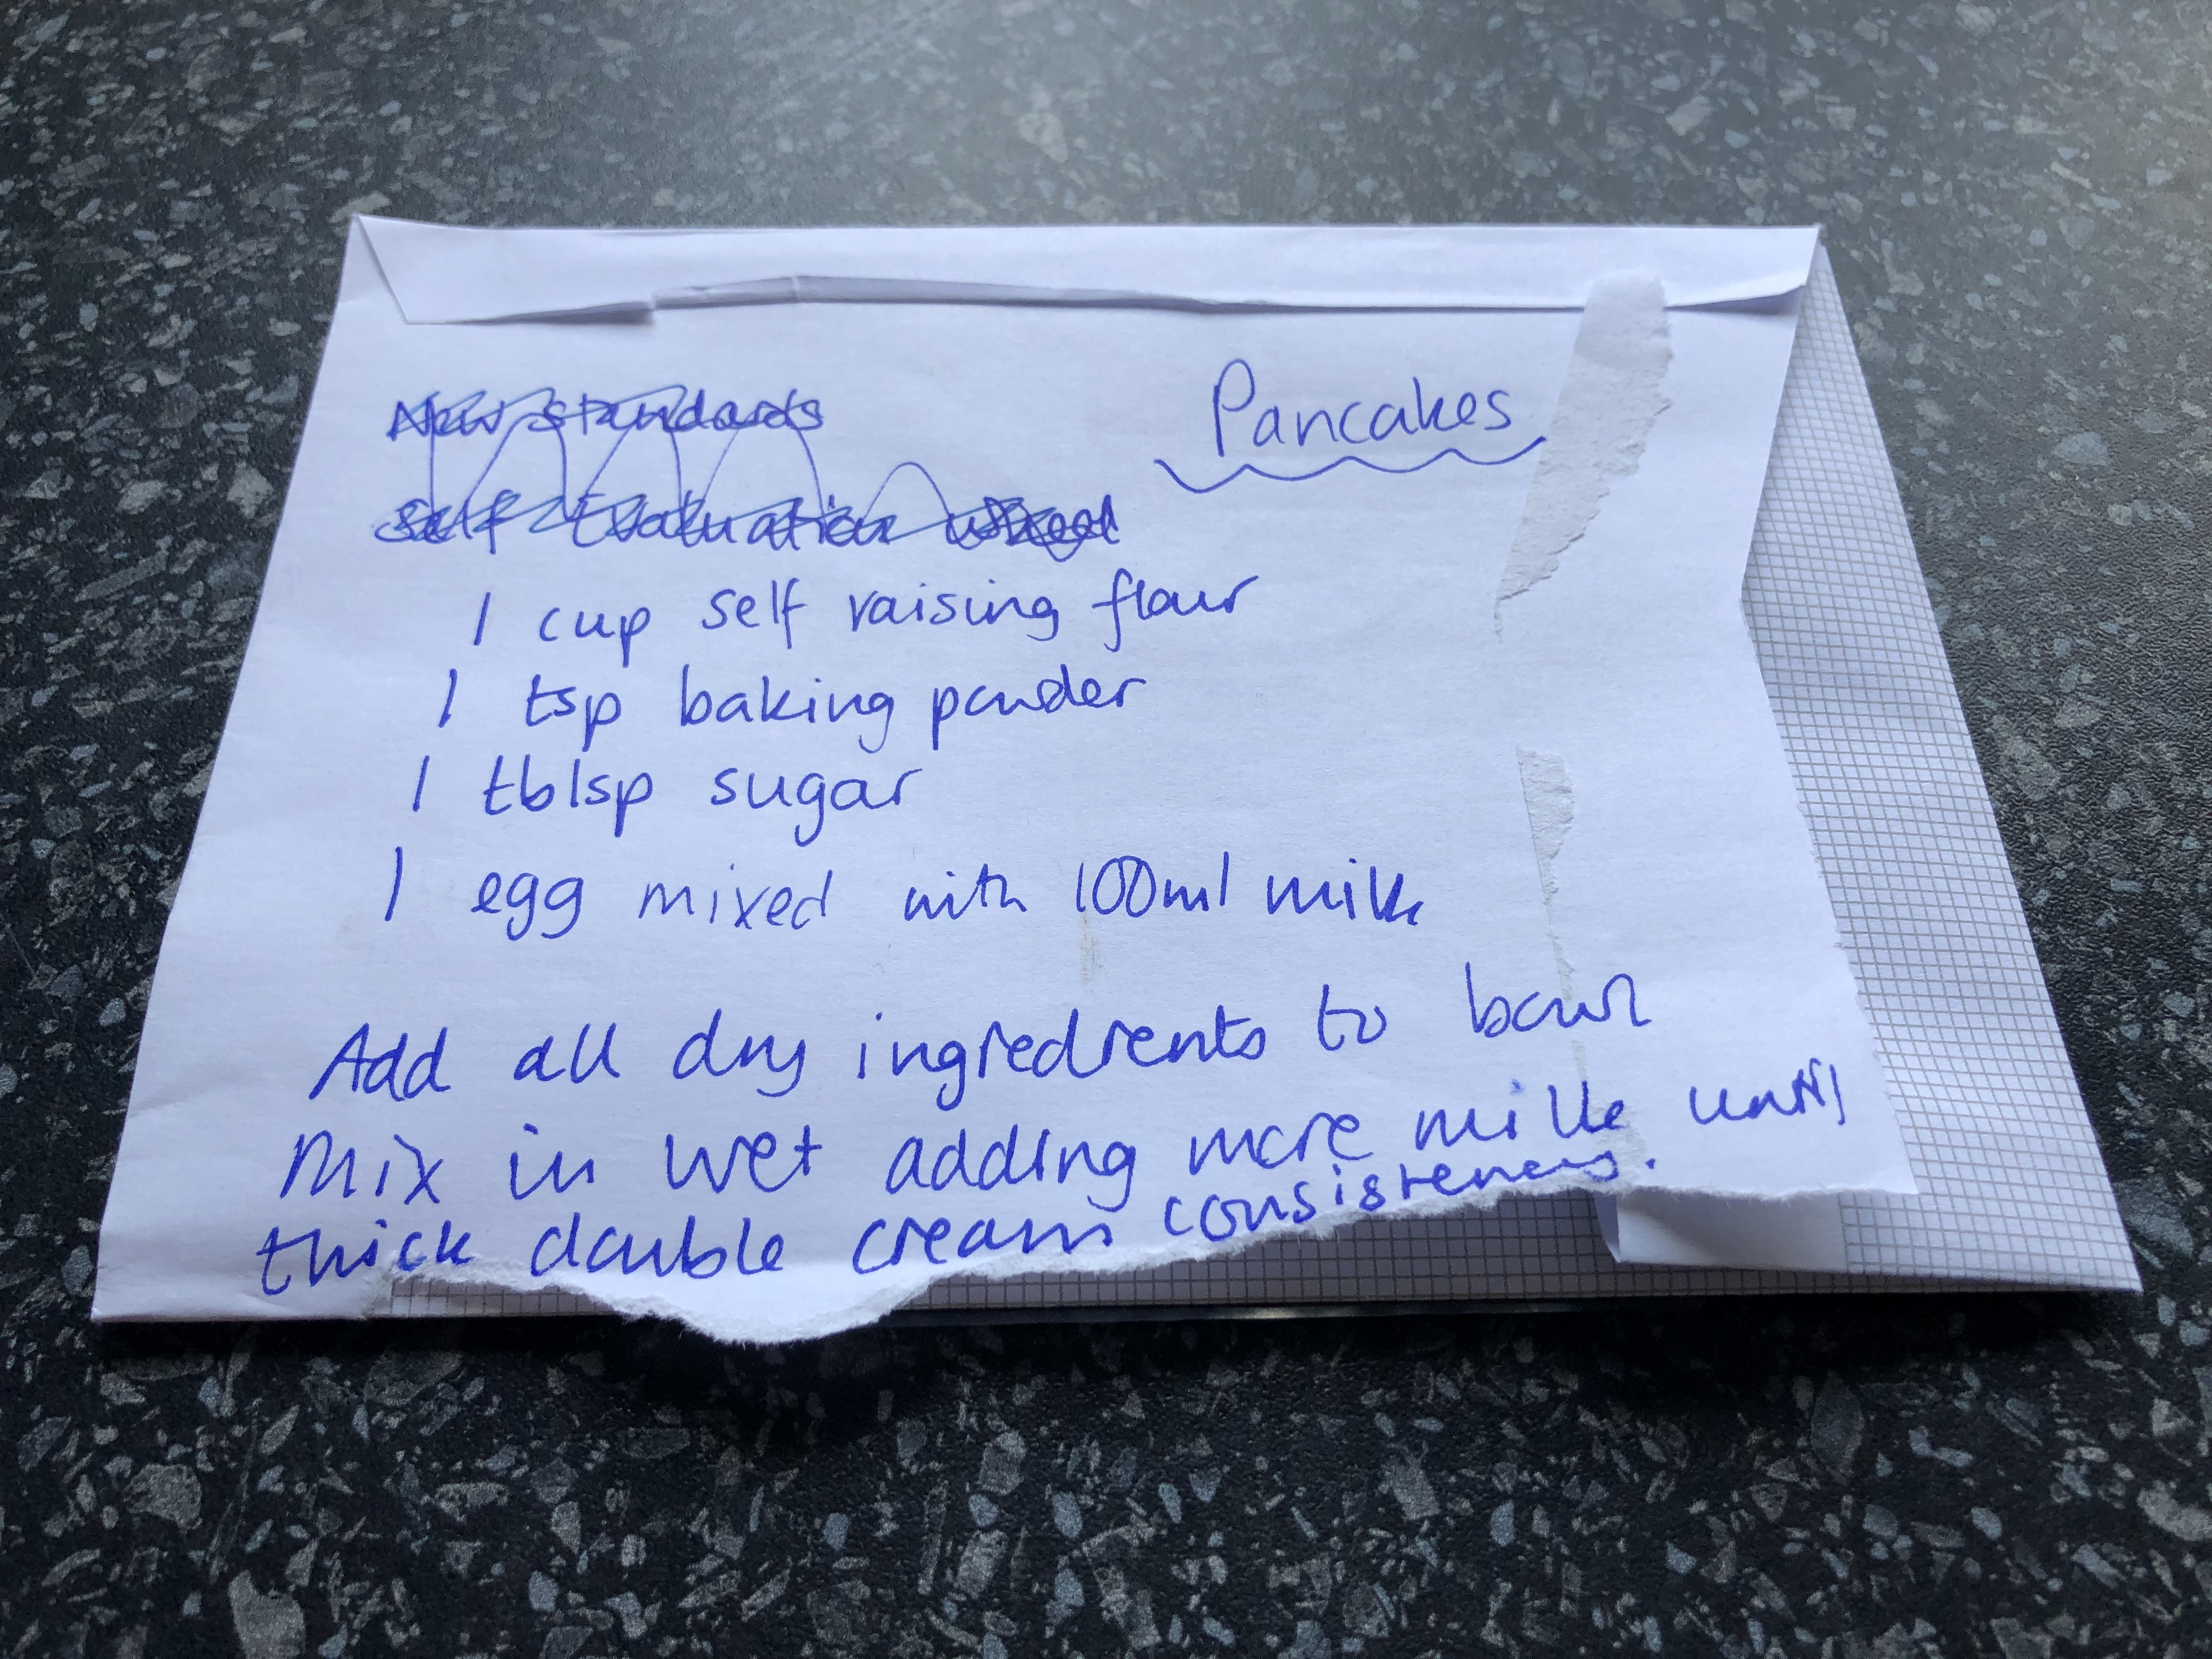 New standards
Pancakes
Self Evaluation wheel
1 cup self raising flour
1 tsp baking powder
1 tblsp sugar
1 egg mixed with 100ml milk
Add all dry ingredients to bowl
Mix in wet adding more milk until
thick double cream consistency.